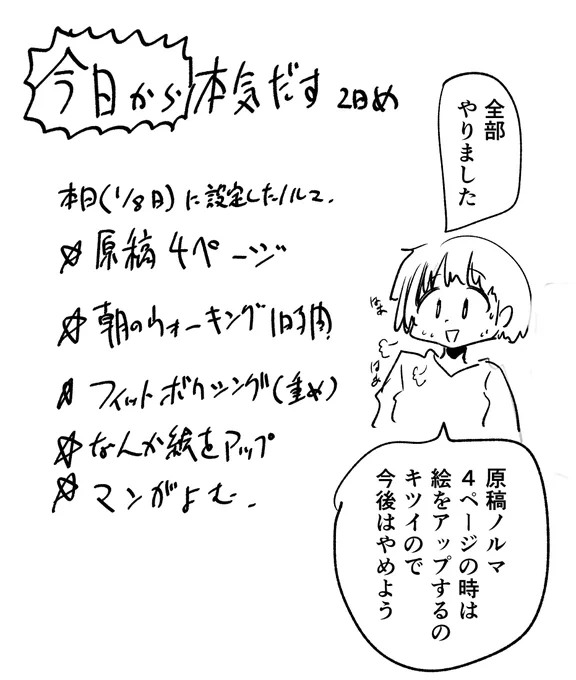 今日から本気だす 2日め
全部
やりました
本日(1/8日)に設定したノルマ.
原稿4ページ
朝のウォーキング1時間
フィットボクシング(重め)
なんか絵をアップ
マンガよむ.
はぁ
はぁ
原稿ノルマ
4ページの時は
絵をアップするの
キツイので
今後はやめよう